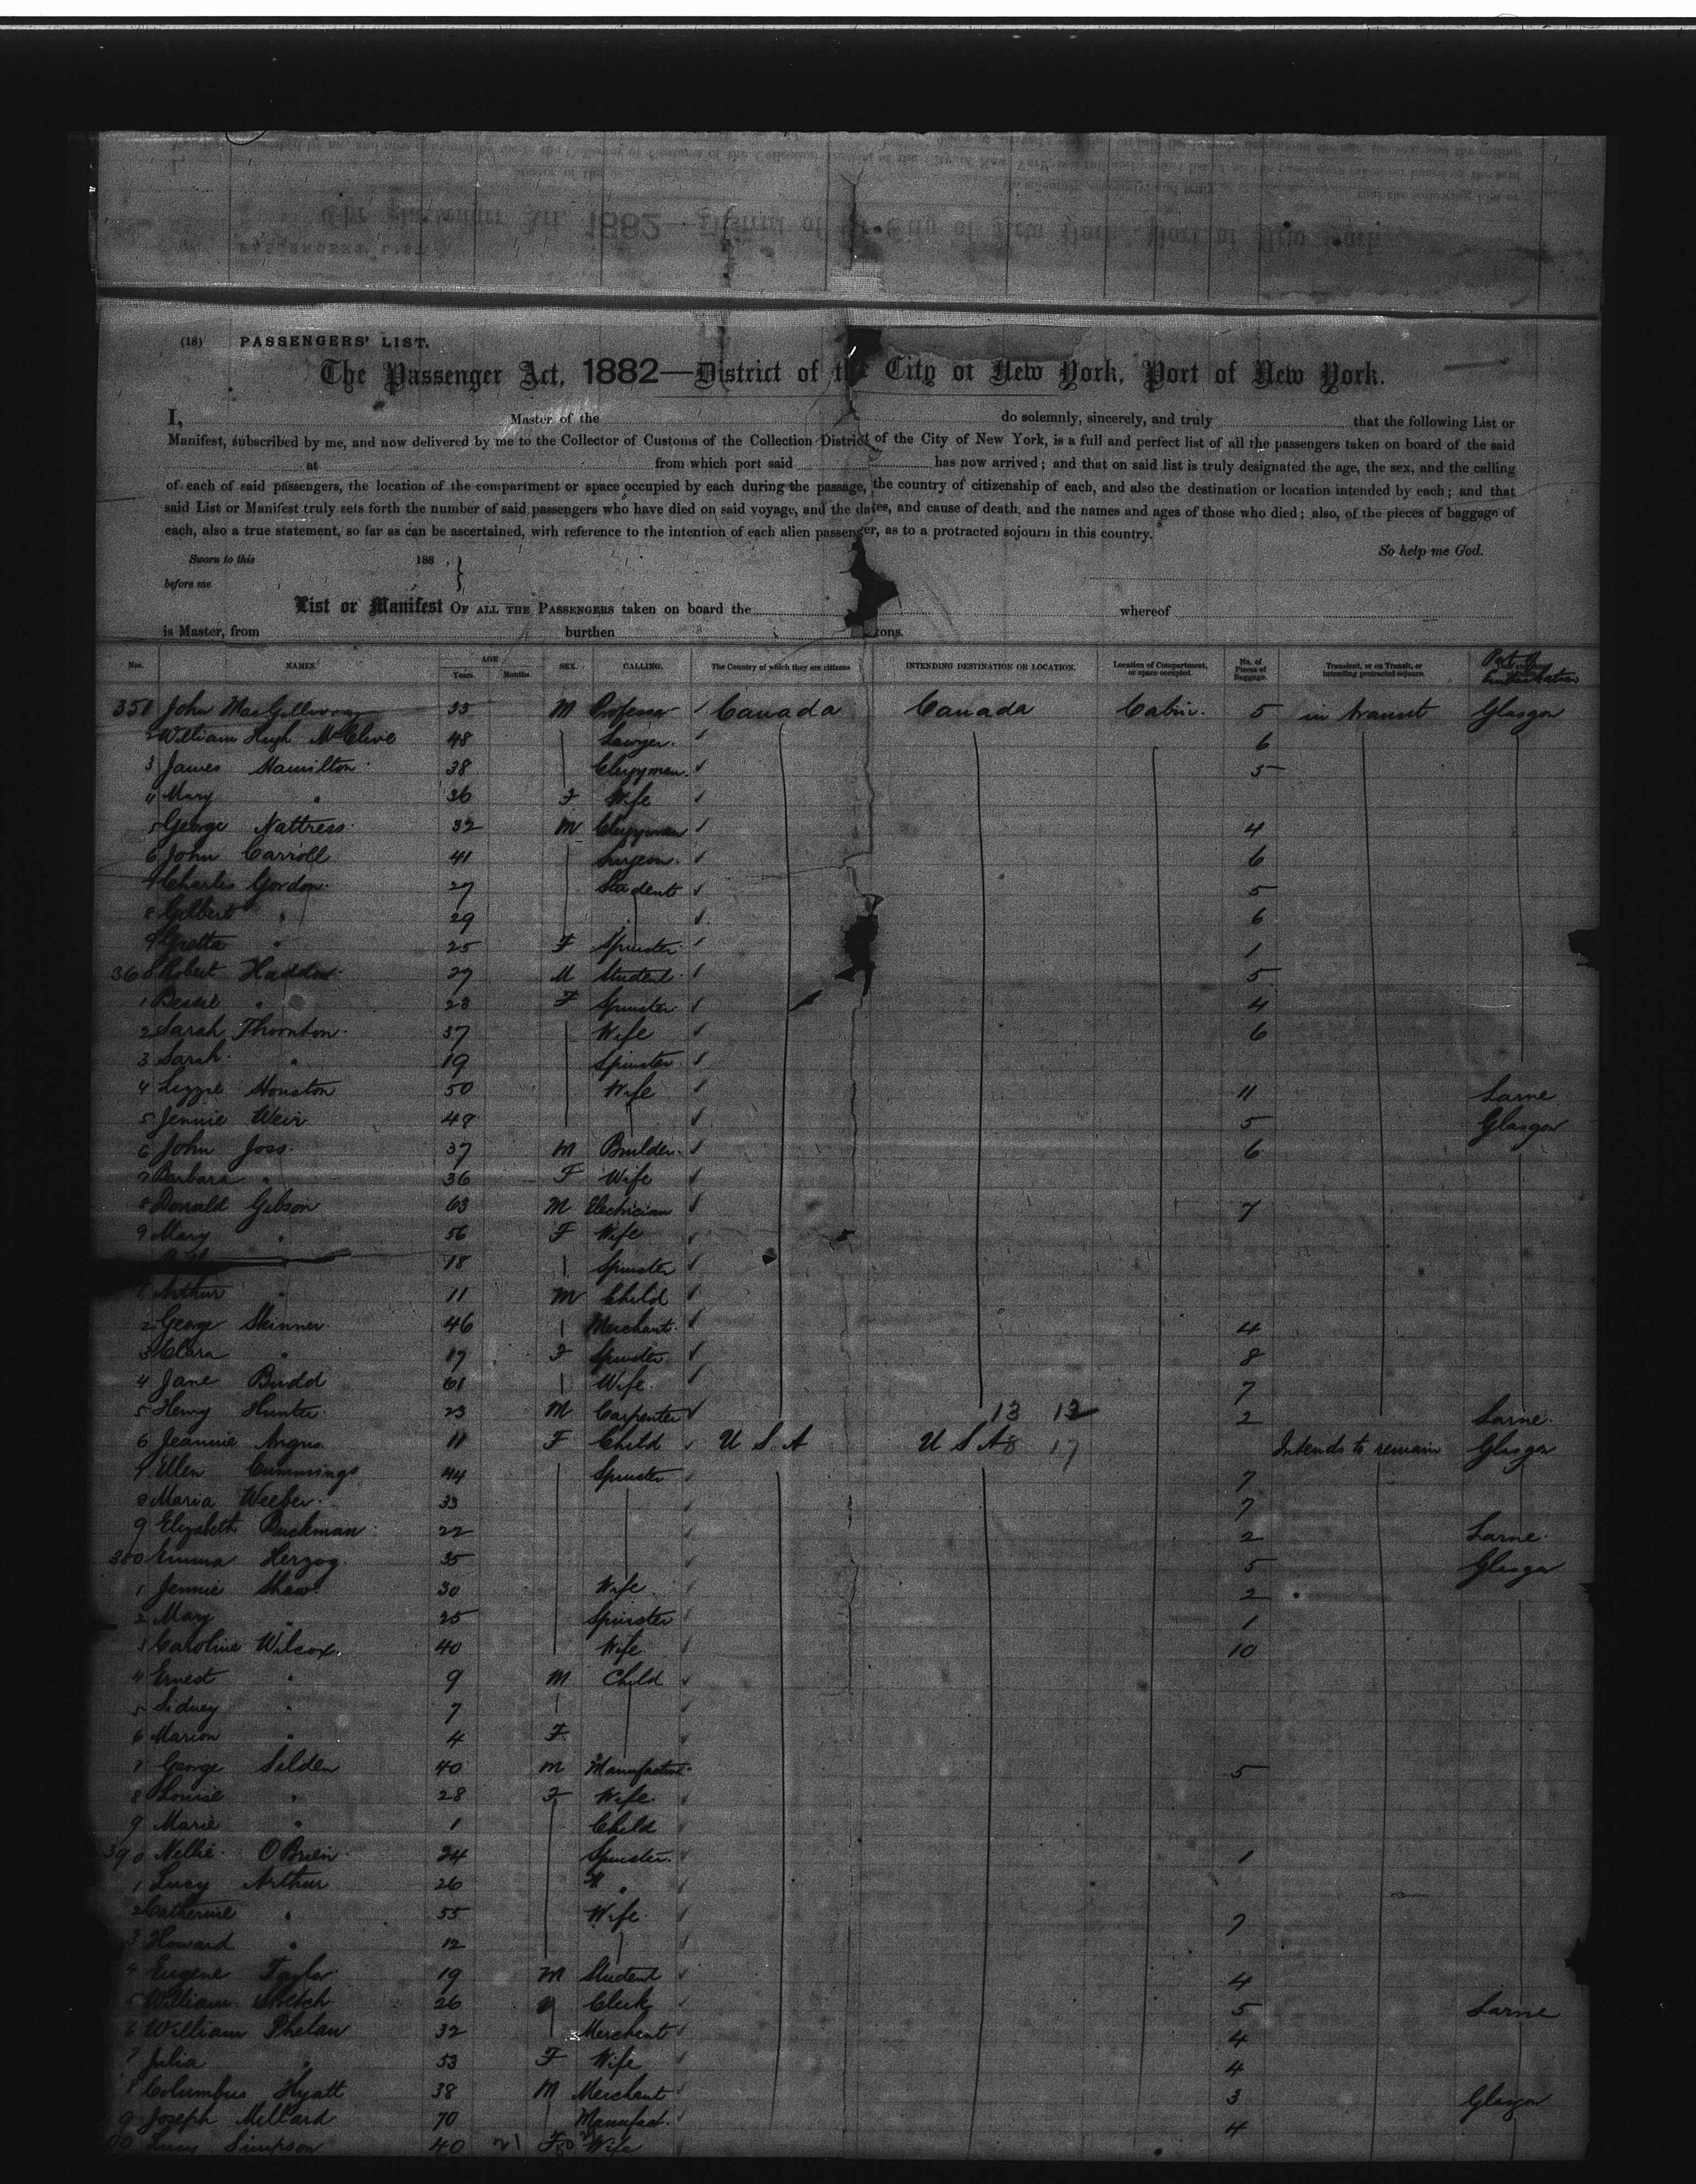 (18) PASSENGERS' LIST.
The Passenger Act, 1882—District of the City of New York, Port of New York.
I, Master of the do solemnly, sincerely, and truly that the following List or
Manifest, subscribed by me, and now delivered by me to the Collector of Customs of the Collection District of the City of New York, is a full and perfect list of all the passengers taken on board of the said
at from which port said has now arrived; and that on said list is truly designated the age, the sex, and the calling
of each of said passengers, the location of the compartment or space occupied by each during the passage, the country of citizenship of each, and also the destination or location intended by each; and that
said List or Manifest truly sets forth the number of said passengers who have died on said voyage, and the dates, and cause of death, and the names and ages of those who died; also, of the pieces of baggage of
each, also a true statement, so far as can be ascertained, with reference to the intention of each alien passenger, as to a protracted sojourn in this country.
So help me God.
Sworn to this 188 .
before me
List or Manifest OF ALL THE PASSENGERS taken on board the whereof
is Master, from burthen tons.
Nos. NAMES. AGE Years. Months. SEX. CALLING. The Country of which they are citizens INTENDING DESTINATION OR LOCATION. Location of Compartment, or space occupied. No. of Pieces of Baggage. Transient, or on Transit, or intending protracted sojourn Port of Embarkation
351 John MacGillivray 35 M Professor Canada Canada Cabin. 5 in transit Glasgow
2 William Hugh McClive 48 Lawyer. 6
3 James Hamilton 38 Clergyman. 5
4 Mary " 36 F Wife
5 George Nattress 32 M Clergyman 4
6 John Carroll 41 Surgeon. 6
7 Charles Gordon 27 Student 5
8 Gilbert " 29 6
9 Gretta " 25 F Spinster 1
360 Robert Haddow 27 M Student 5
1 Bessie " 23 F Spinster 4
2 Sarah Thornton 37 Wife 6
3 Sarah " 19 Spinster
4 Lizzie Houston 50 Wife 11 Larne
5 Jennie Weir 48 5 Glasgow
6 John Joss 37 M Builder 6
7 Barbara " 36 F Wife
8 Donald Gibson 63 M Electrician 7
9 Mary " 56 F Wife
18 Spinster
1 Arthur " 11 M Child
2 George Skinner 46 Merchant 4
3 Clara " 17 F Spinster 8
4 Jane Budd 61 Wife 7
5 Henry Hunter 23 M Carpenter 13 12 2 Larne
6 Jeannie Angus 11 F Child U S. A U S A 8 17 Intends to remain Glasgow
7 Ellen Cummings 44 Spinster 7
8 Maria Weeber 33 7
9 Elizabeth Buckman 22 2 Larne
380 Emma Herzog 35 5 Glasgow
1 Jennie Shaw 30 Wife 2
2 Mary " 25 Spinster 1
3 Caroline Wilcox 40 Wife 10
4 Ernest " 9 M Child
5 Sidney " 7
6 Marion " 4 F
7 George Selden 40 M Manufacture 5
8 Louise " 28 F Wife
9 Marie " 1 Child
390 Nellie O'Brien 24 Spinster 1
1 Lucy Arthur 26 "
2 Catherine " 55 Wife 7
3 Howard " 12
4 Eugene Taylor 19 M Student 4
5 William 26 Clerk 5 Larne
6 William Phelan 32 Merchant 4
7 Julia " 53 F Wife 4
8 Columbus Hyatt 38 M Merchant 3 Glasgow
9 Joseph Millard 70 Manufact. 4
00 Lucy Simpson 40 21 F 50 Wife